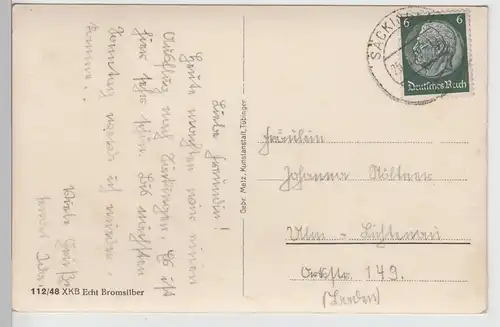 Liebe Freundin!
Heute machten wir einen
Ausflug nach Säckingen. Es ist
hier sehr schön. Bis nächsten
Sonntag werde ich wieder
kommen.
Viele Grüße
Gebr. Metz, Kunstanstalt, Tübingen
112/48 XKB Echt Bromsilber
SÄCKIN
6 6
Deutsches Reich
Fräulein
Johanna Nöltner
Ulm-Lichtenau
149.
(Baden)